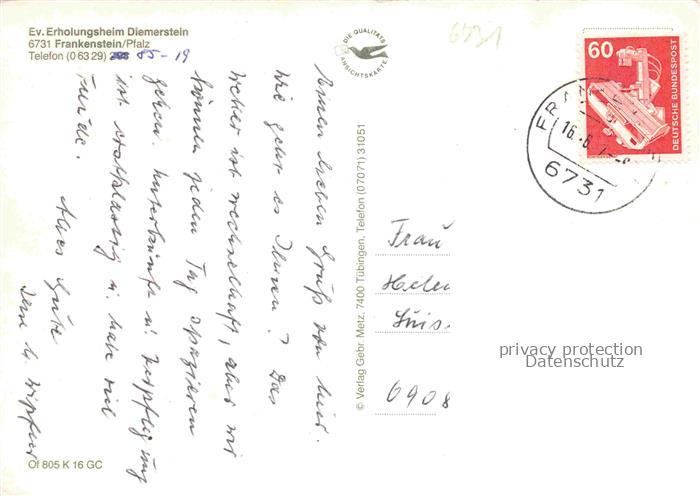 Ev. Erholungsheim Diemerstein
6731 Frankenstein/Pfalz
Telefon (0 63 29) 85-19
6731
DIE QUALITÄTS
ANSICHTSKARTE
60
DEUTSCHE BUNDESPOST
16.-8.
6731
einen lieben Gruß von hier.
Wie geht es Ihnen? Das
Wetter ist wechselhaft, aber wir
können jeden Tag spazieren
gehen. Unterkunft u. Verpflegung
ist erstklassig u. habe viel
Freude.
Alles Gute
© Verlag Gebr. Metz, 7400 Tübingen, Telefon (07071) 31051
Frau
Helen
Luis
6908
privacy protection
Datenschutz
Of 805 K 16 GC